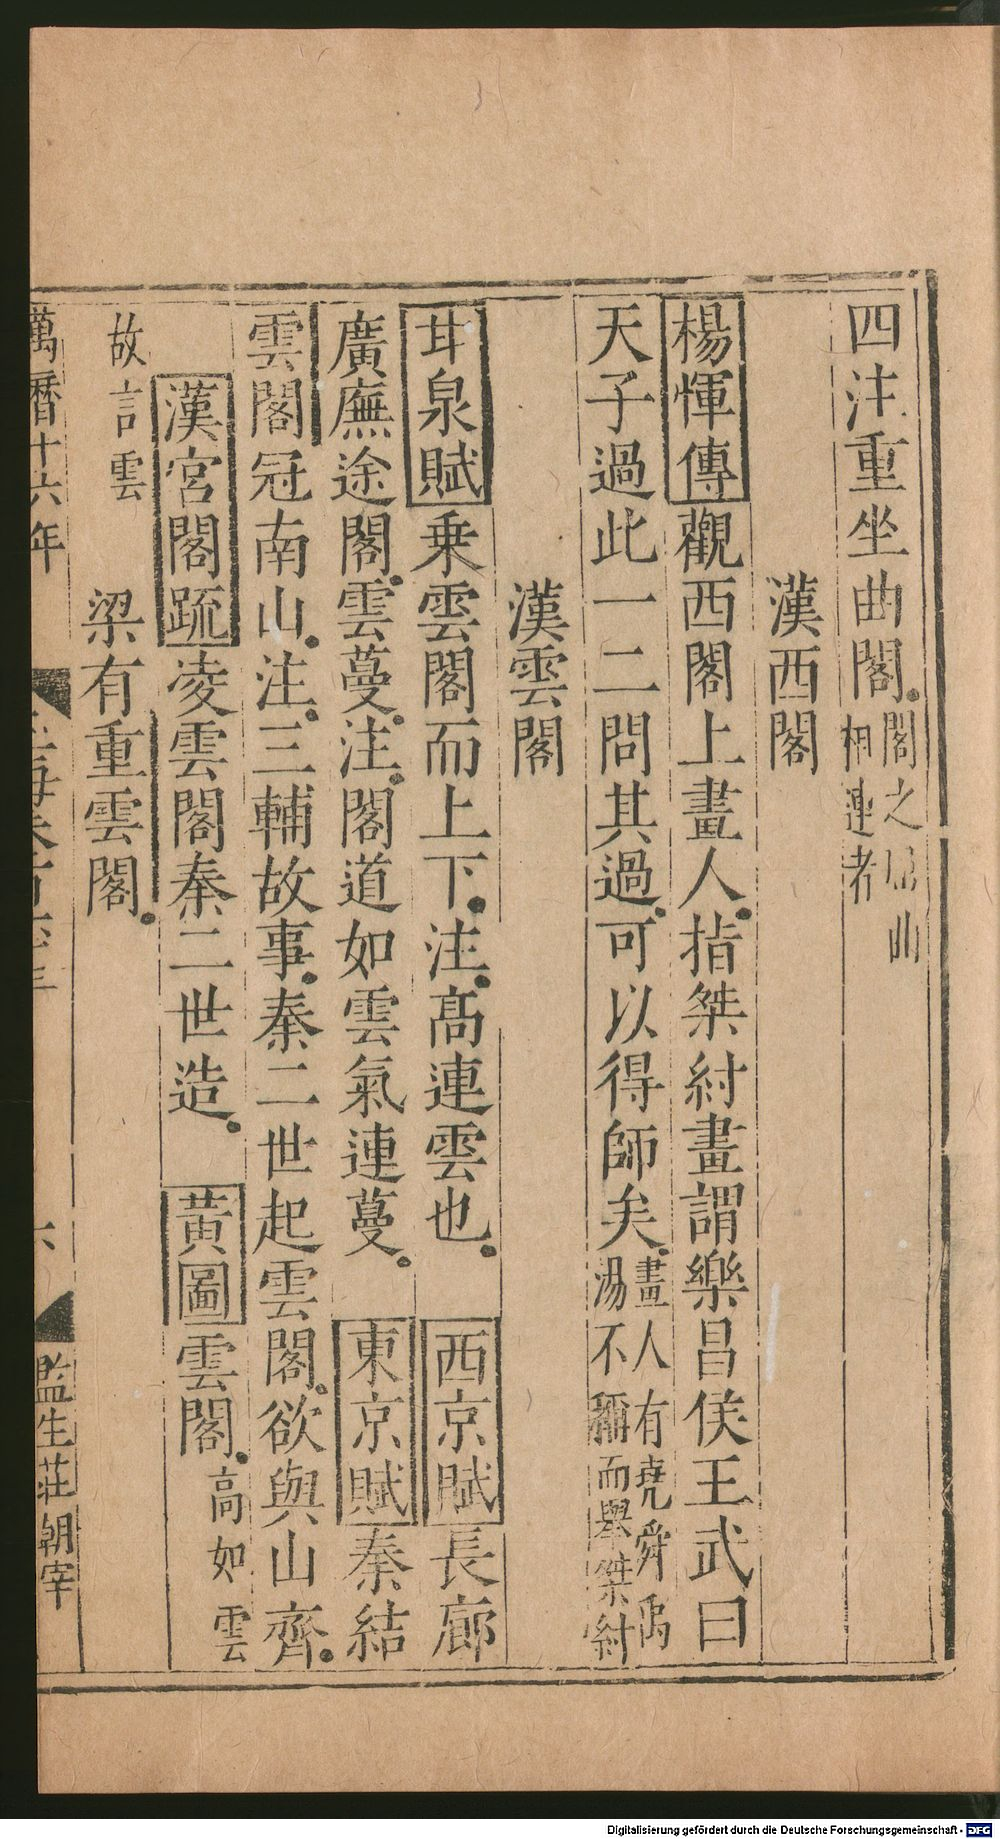 四注重坐曲閣閣之屈曲相連者
漢西閣
楊惲傳觀西閣上畫人指桀紂畫謂樂昌侯王武曰
天子過此一二問其過可以得師矣畫人有堯舜禹湯不稱而舉桀紂
漢雲閣
甘泉賦乗雲閣而上下注髙連雲也西京賦長廊
廣廡途閣雲蔓注閣道如雲氣連蔓東京賦秦結
雲閣冠南山注三輔故事秦二世起雲閣欲與山齊
漢宮閣疏凌雲閣秦二世造黃圖雲閣高如雲
故言雲梁有重雲閣
萬曆十六年 玉海卷百六十三 六 監生莊朝宰
Digitalisierung gefördert durch die Deutsche Forschungsgemeinschaft - DFG